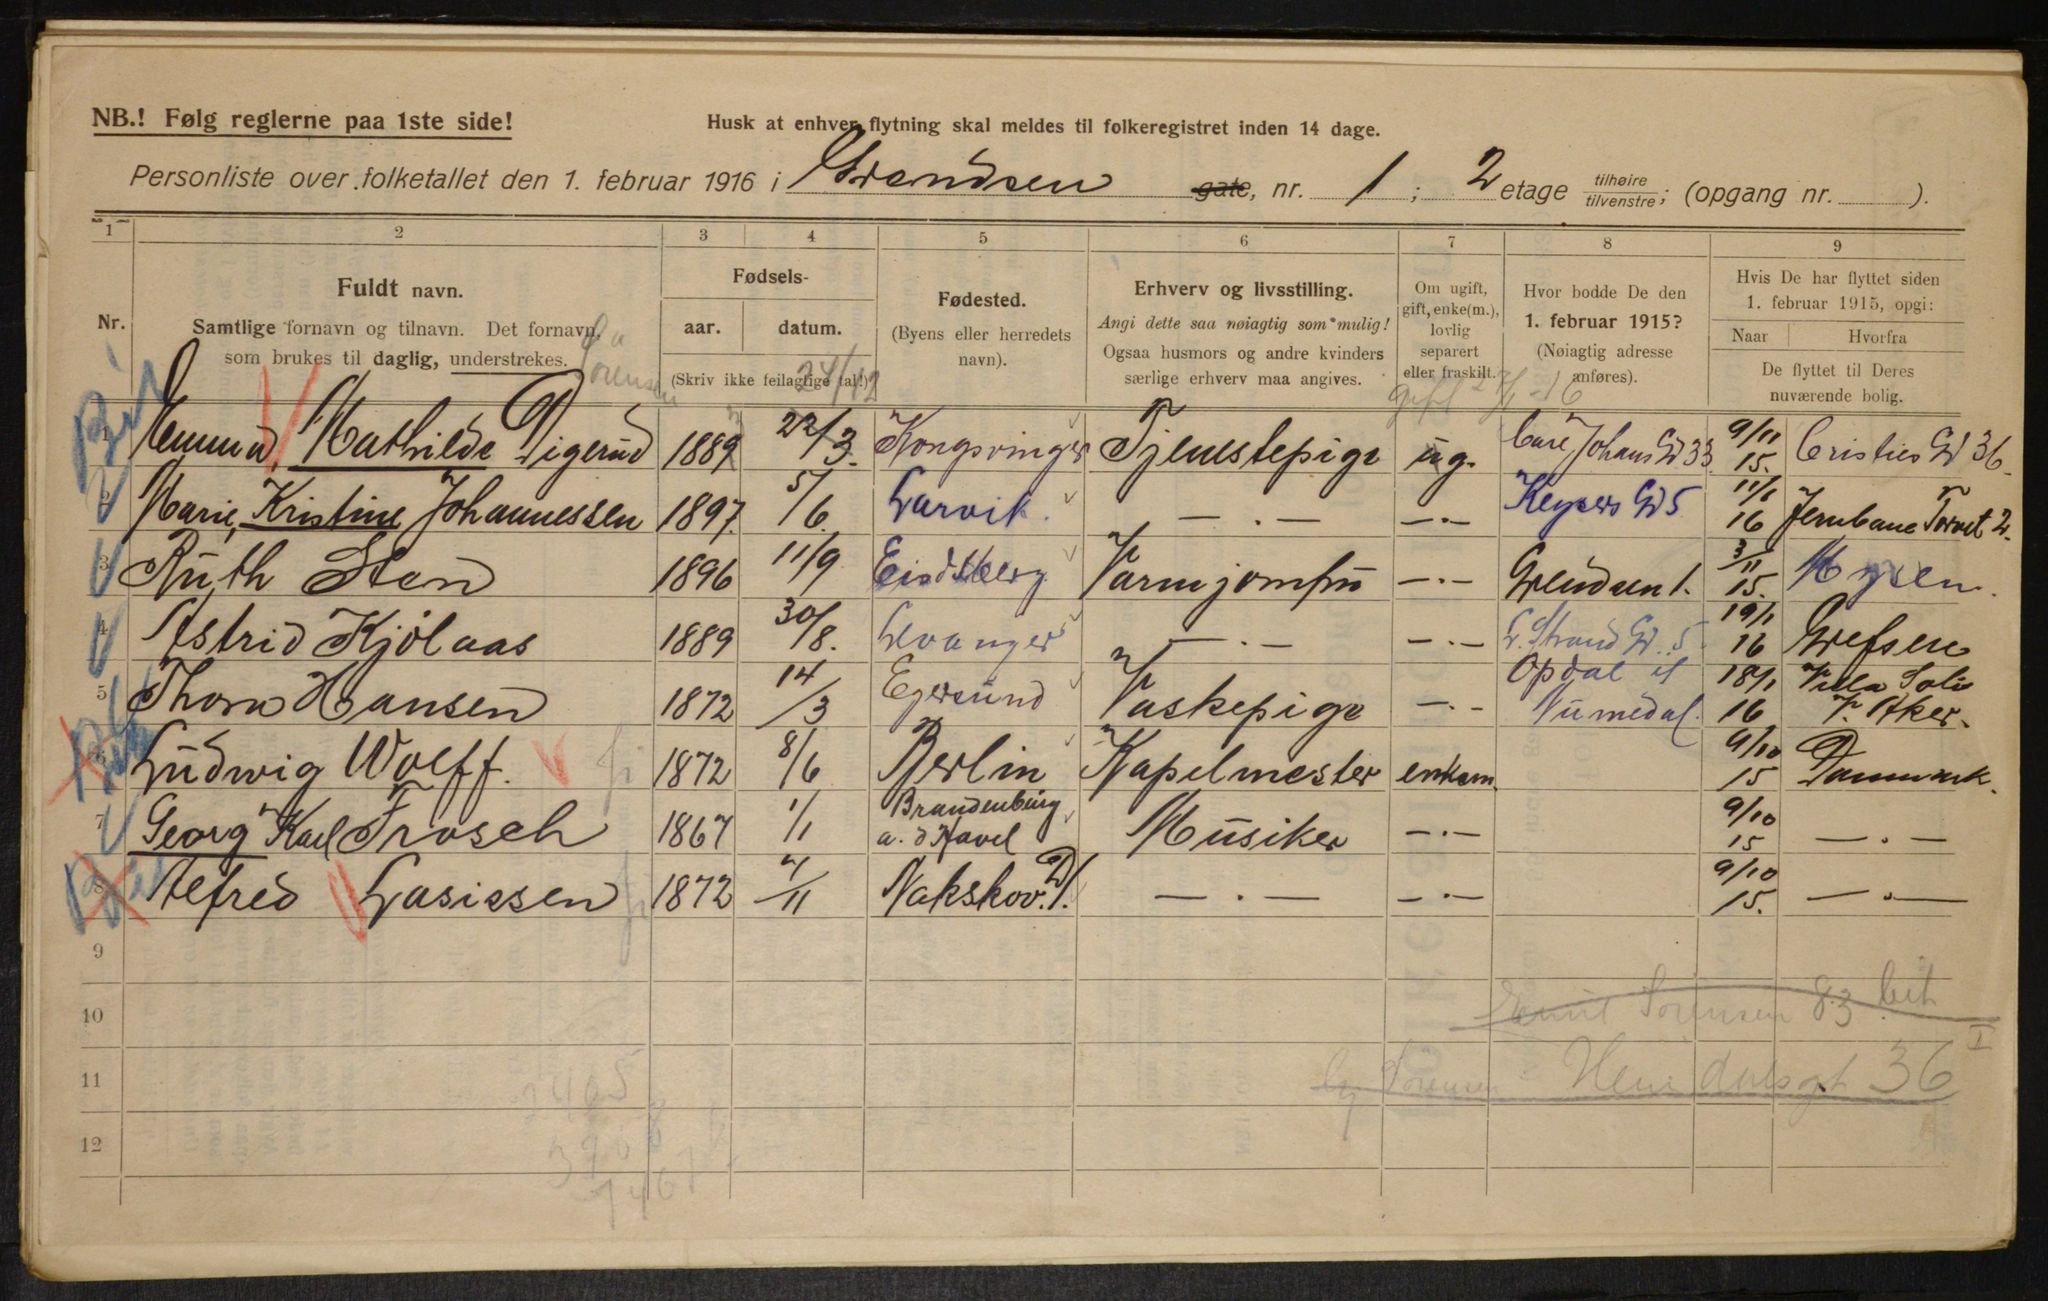 NB.! Følg reglerne paa 1ste side!
Husk at enhver flytning skal meldes til folkeregistret inden 14 dage.
Personliste over folketallet den 1. februar 1916 i Grændsen gate, nr. 1; 2 etage tilhøire / tilvenstre; (opgang nr. ).
1 2 3 4 5 6 7 8 9
Nr.
Fuldt navn.
Samtlige fornavn og tilnavn. Det fornavn,
som brukes til daglig, understrekes.
Fødsels-
aar. datum.
(Skriv ikke feilagtige tal!)
Fødested.
(Byens eller herredets
navn).
Erhverv og livsstilling.
Angi dette saa nøiagtig som mulig!
Ogsaa husmors og andre kvinders
særlige erhverv maa angives.
Om ugift,
gift, enke(m.),
lovlig
separert
eller fraskilt.
Hvor bodde De den
1. februar 1915?
(Nøiagtig adresse
anføres).
Hvis De har flyttet siden
1. februar 1915, opgi:
Naar Hvorfra
De flyttet til Deres
nuværende bolig.
Sørensen 24/12
gift
1 Emma, Mathilde Digerud 1889 22/3. Kongsvinger Tjenestepige ug. Carl Johans Gd 33 9/11 15. Cristies Gd 36.
2 Marie, Kristine Johannessen 1897 5/6. Larvik. — . — — . — Keysers Gd 5 11/1 16 Jernbane Torvet 2.
3 Ruth Sten 1896 11/9 Eidsberg Varmjomfru — . — Grendsen 1. 3/11 15. Mysen.
4 Astrid Kjölaas 1889 30/8. Levanger — . — — . — L. Strand Gd. 5 19/1 16 Grefsen
5 Thora Hansen 1872 14/3 Egersund Vaskepige — . — Opdal i Numedal. 18/1 16 Villa Solli V. Aker.
6 Ludwig Wolff. 1872 8/6 Berlin Kapelmester enkem. 9/10 15 Danmark.
7 Georg Karl Frosch 1867 1/1 Brandenburg a. d Havel Musiker — . — 9/10 15 — . —
8 Alfred Lasissen 1872 4/11 Nakskov. D/. — . — — . — 9/10 15. — . —
9
10 Sørensen 83
11 Sørensen 36 I
12
2405